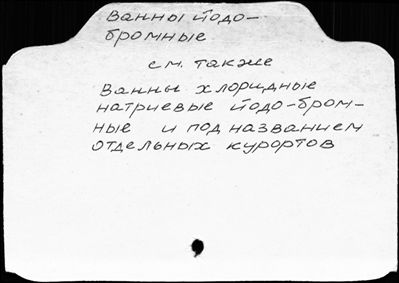 Ванны йодо-
бромные
см. также
Ванны хлоридные
натриевые йодо-бром-
ные и под названием
отдельных курортов